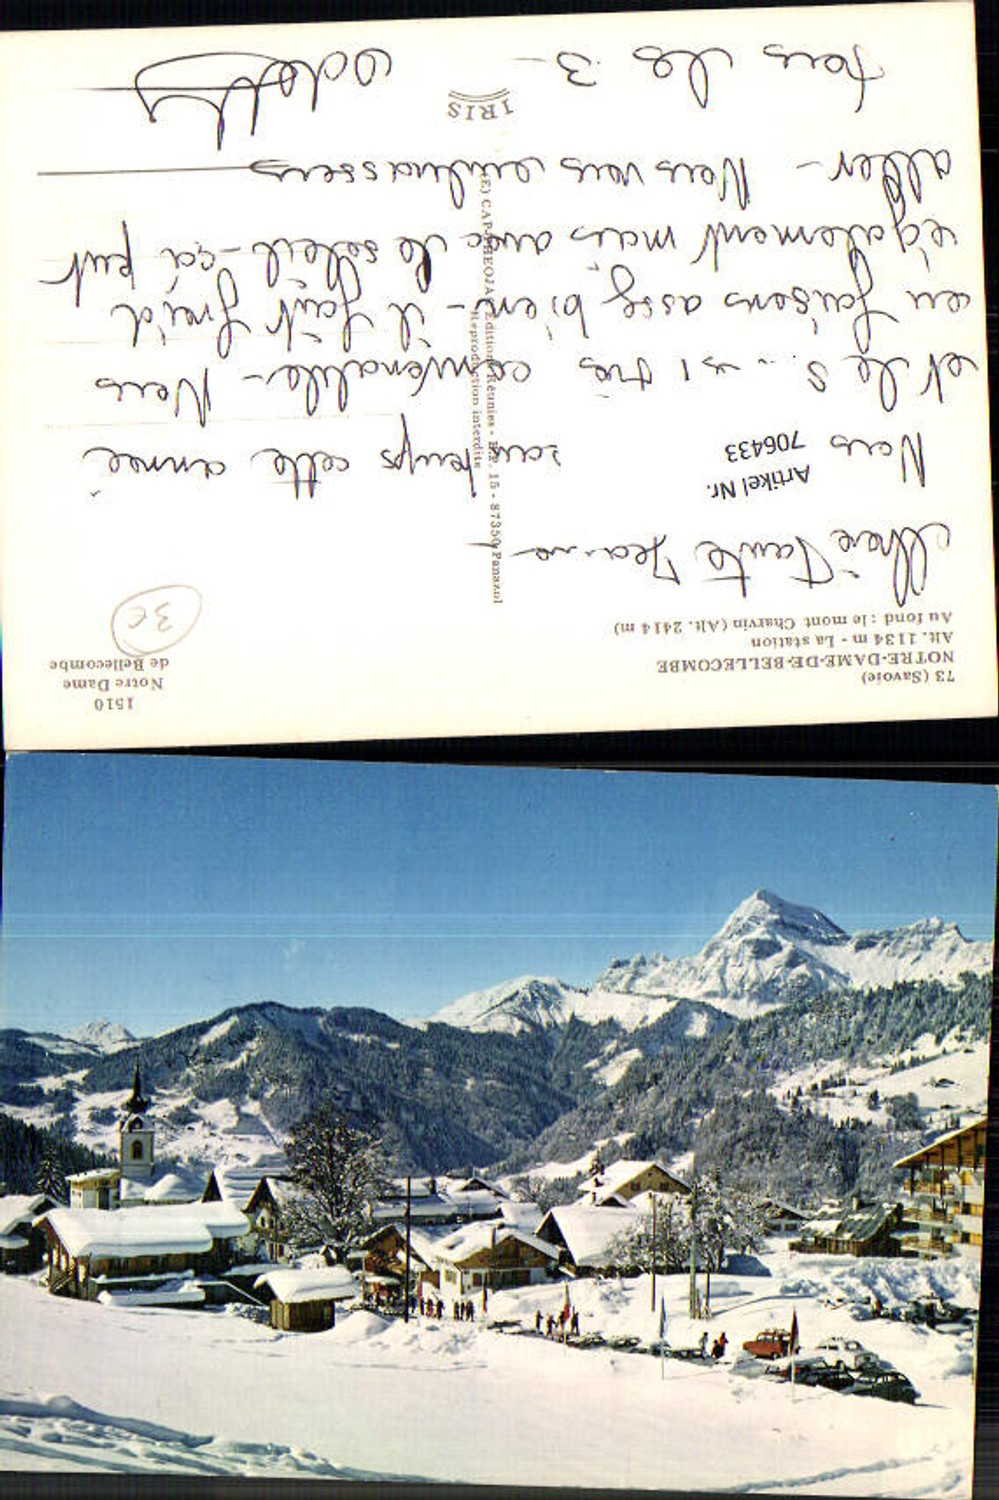 73 (Savoie)
NOTRE-DAME-DE-BELLECOMBE
Alt. 1134 m - La station
Au fond : le mont Charvin (Alt. 2414 m)
1510
Notre Dame
de Bellecombe
3€
Chère Tante Jeanne
Artikel Nr.
706433
Nous temps cette année
et le s... est très convenable - Nous
en faisons assez bien - il fait froid
également mais avec le soleil - ça peut
aller - Nous vous embrassons
tous les 3 -
(E) CAP-THEOJAC Editions Réunies - B.P. 15 - 87350 Panazol
Reproduction interdite
IRIS